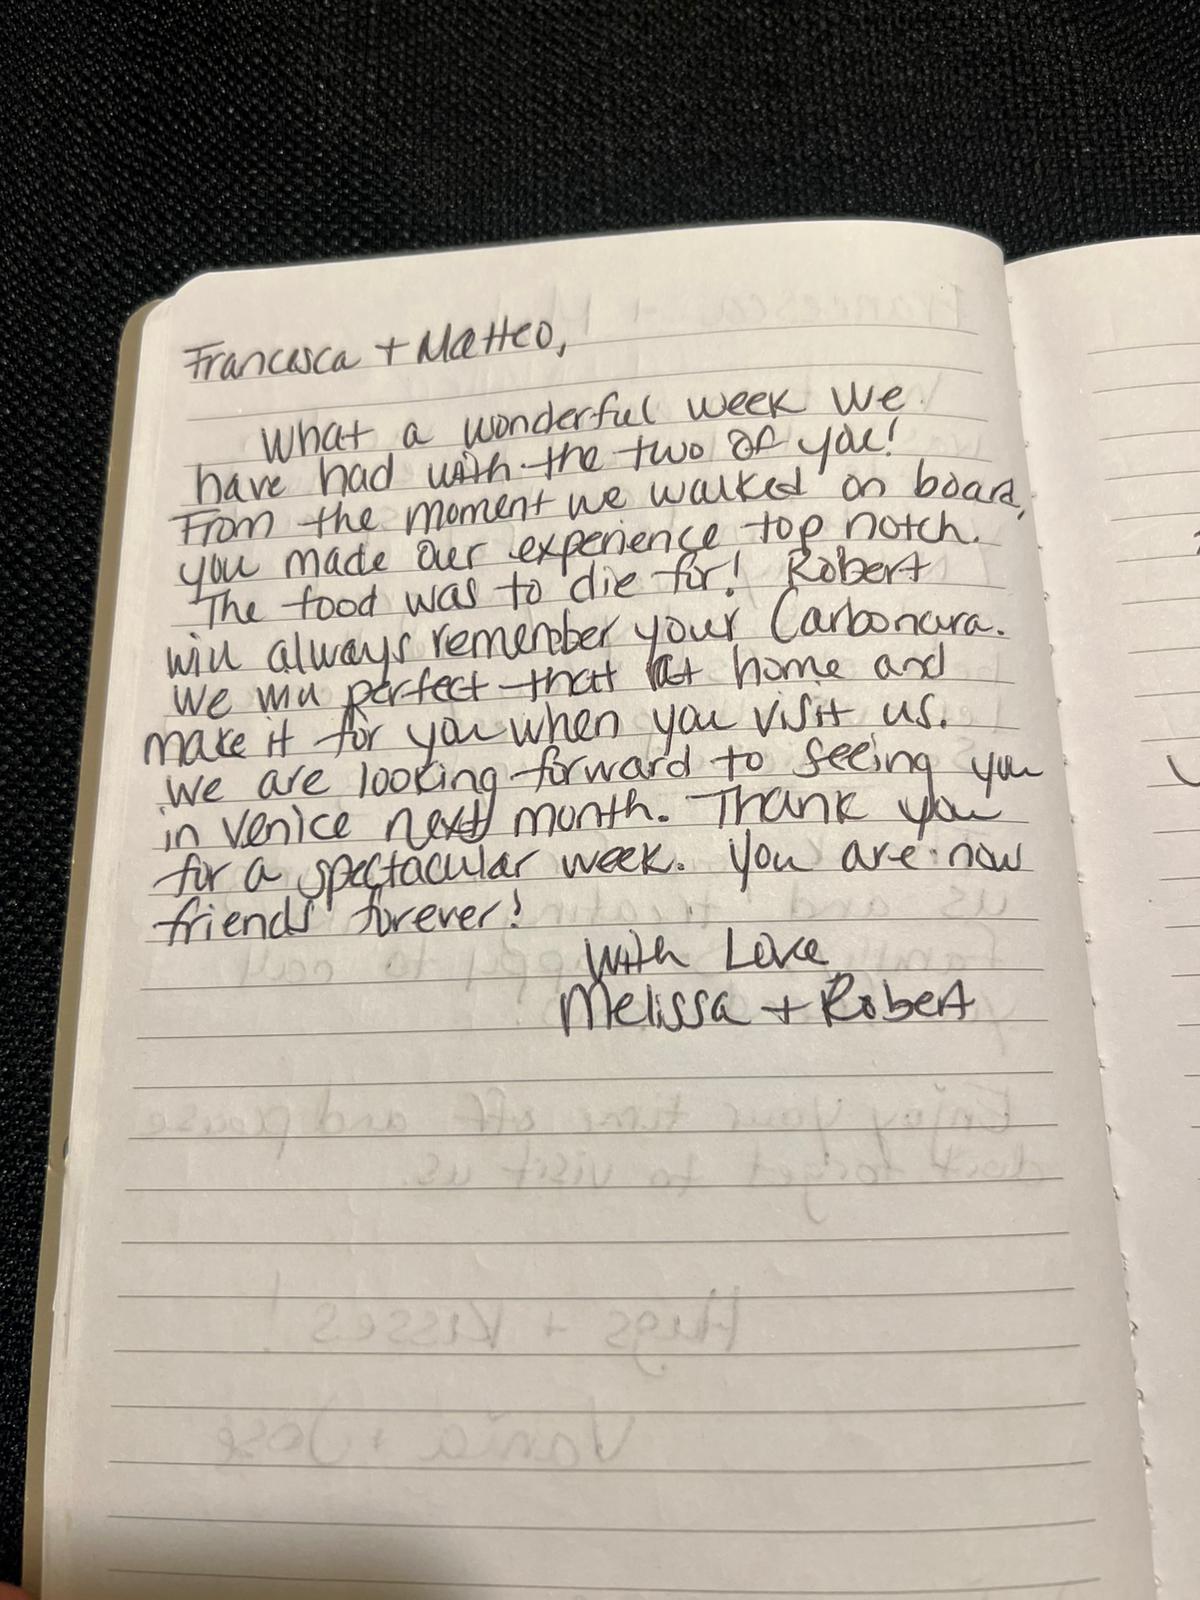 Francesca + Matteo,
What a wonderful week we
have had with the two of you!
From the moment we walked on board,
you made our experience top notch.
The food was to die for! Robert
will always remember your Carbonara.
We will perfect that at home and
make it for you when you visit us.
We are looking forward to seeing you
in Venice next month. Thank you
for a spectacular week. You are now
friends forever!
With Love
Melissa + Robert
Enjoy your time off and please
don't forget to visit us.
Hugs + Kisses!
Vania + Jose